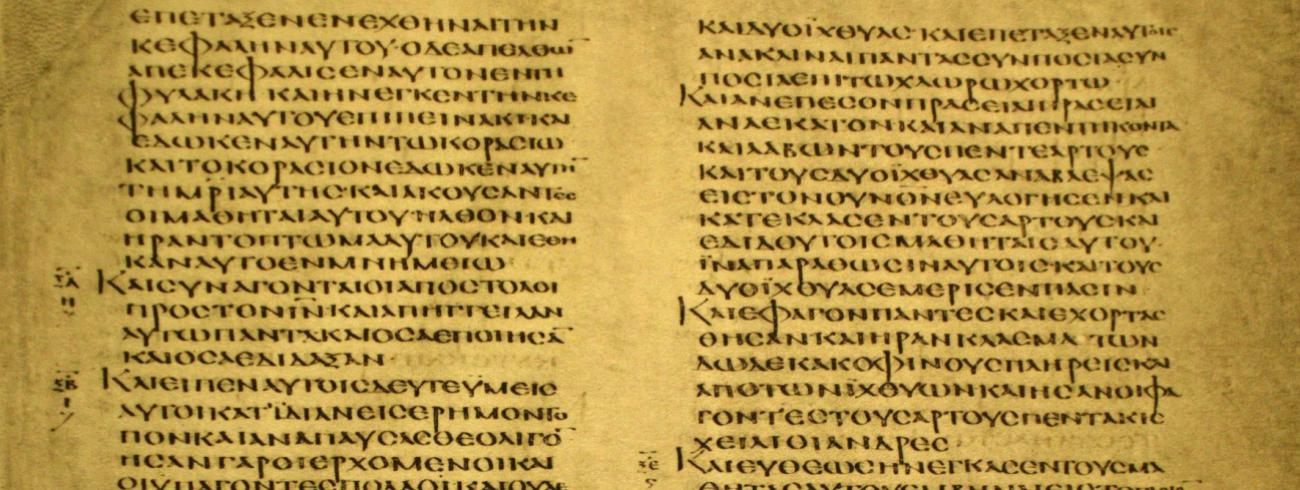 ΕΠΕΤΑΞΕΝΕΝΕΧΘΗΝΑΙΤΗΝ
ΚΕΦΑΛΗΝΑΥΤΟΥ·ΟΔΕΑΠΕΛΘΩ̅
ΑΠΕΚΕΦΑΛΙϹΕΝΑΥΤΟΝΕΝΤΗ
ΦΥΛΑΚΗ ΚΑΙΗΝΕΓΚΕΝΤΗΝΚΕ
ΦΑΛΗΝΑΥΤΟΥΕΠΙΠΕΙΝΑΚΗΚΑΙ
ΕΔΩΚΕΝΑΥΤΗΝΤΩΚΟΡΑϹΙΩ
ΚΑΙΤΟΚΟΡΑϹΙΟΝΕΔΩΚΕΝΑΥΤΗ̅
ΤΗΜΡ̅ΙΑΥΤΗϹ·ΚΑΙΑΚΟΥϹΑΝΤΕϹ
ΟΙΜΑΘΗΤΑΙΑΥΤΟΥΗΛΘΟΝΚΑΙ
ΗΡΑΝΤΟΠΤΩΜΑΑΥΤΟΥΚΑΙΕΘΗ
ΚΑΝΑΥΤΟΕΝΜΝΗΜΕΙΩ
ΞΑ
Η
ΚΑΙϹΥΝΑΓΟΝΤΑΙΟΙΑΠΟϹΤΟΛΟΙ
ΠΡΟϹΤΟΝΙ̅Ν̅ΚΑΙΑΠΗΓΓΕΙΛΑΝ
ΑΥΤΩΠΑΝΤΑΚΑΙΟϹΑΕΠΟΙΗϹΑ̅
ΚΑΙΟϹΑΕΔΙΔΑΞΑΝ
ΞΒ
Ι
ΚΑΙΕΙΠΕΝΑΥΤΟΙϹΔΕΥΤΕΫΜΕΙϹ
ΑΥΤΟΙΚΑΤΪΔΙΑΝΕΙϹΕΡΗΜΟΝΤΟ
ΠΟΝΚΑΙΑΝΑΠΑΥϹΑϹΘΕΟΛΙΓΟ̅
ΗϹΑΝΓΑΡΟΙΕΡΧΟΜΕΝΟΙΚΑΙ
ΟΙΥΠΑΓΟΝΤΕϹΠΟΛΛΟΙΚΑΙΟΥΔΕ
ΚΑΙΔΥΟΪΧΘΥΑϹ·ΚΑΙΕΠΕΤΑΞΕΝΑΥΤΟΙϹ
ΑΝΑΚΛΙΝΑΙΠΑΝΤΑϹϹΥΝΠΟϹΙΑϹΥΝ
ΠΟϹΙΑΕΠΙΤΩΧΛΩΡΩΧΟΡΤΩ
ΚΑΙΑΝΕΠΕϹΟΝΠΡΑϹΕΙΑΙΠΡΑϹΕΙΑΙ
ΑΝΑΕΚΑΤΟΝΚΑΙΑΝΑΠΕΝΤΗΚΟΝΤΑ
ΚΑΙΛΑΒΩΝΤΟΥϹΠΕΝΤΕΑΡΤΟΥϹ
ΚΑΙΤΟΥϹΔΥΟΪΧΘΥΑϹΑΝΑΒΛΕΨΑϹ
ΕΙϹΤΟΝΟΥΝΟ̅Ν̅ΕΥΛΟΓΗϹΕΝΚΑΙ
ΚΑΤΕΚΛΑϹΕΝΤΟΥϹΑΡΤΟΥϹΚΑΙ
ΕΔΙΔΟΥΤΟΙϹΜΑΘΗΤΑΙϹΑΥΤΟΥ·
ΪΝΑΠΑΡΑΘΩϹΙΝΑΥΤΟΙϹ·ΚΑΙΤΟΥϹ
ΔΥΟΪΧΘΥΑϹΕΜΕΡΙϹΕΝΠΑϹΙΝ
ΚΑΙΕΦΑΓΟΝΠΑΝΤΕϹΚΑΙΕΧΟΡΤΑϹ
ΘΗϹΑΝ·ΚΑΙΗΡΑΝΚΛΑϹΜΑΤΩΝ
ΔΩΔΕΚΑΚΟΦΙΝΟΥϹΠΛΗΡΕΙϹΚΑΙ
ΑΠΟΤΩΝΪΧΘΥΩΝΚΑΙΗϹΑΝΟΙΦΑ
ΓΟΝΤΕϹΤΟΥϹΑΡΤΟΥϹΠΕΝΤΑΚΙϹ
ΧΕΙΛΙΟΙΑΝΔΡΕϹ
ΞΕ
ΚΑΙΕΥΘΕΩϹΗΝΕΓΚΑϹΕΝΤΟΥϹΜΑ